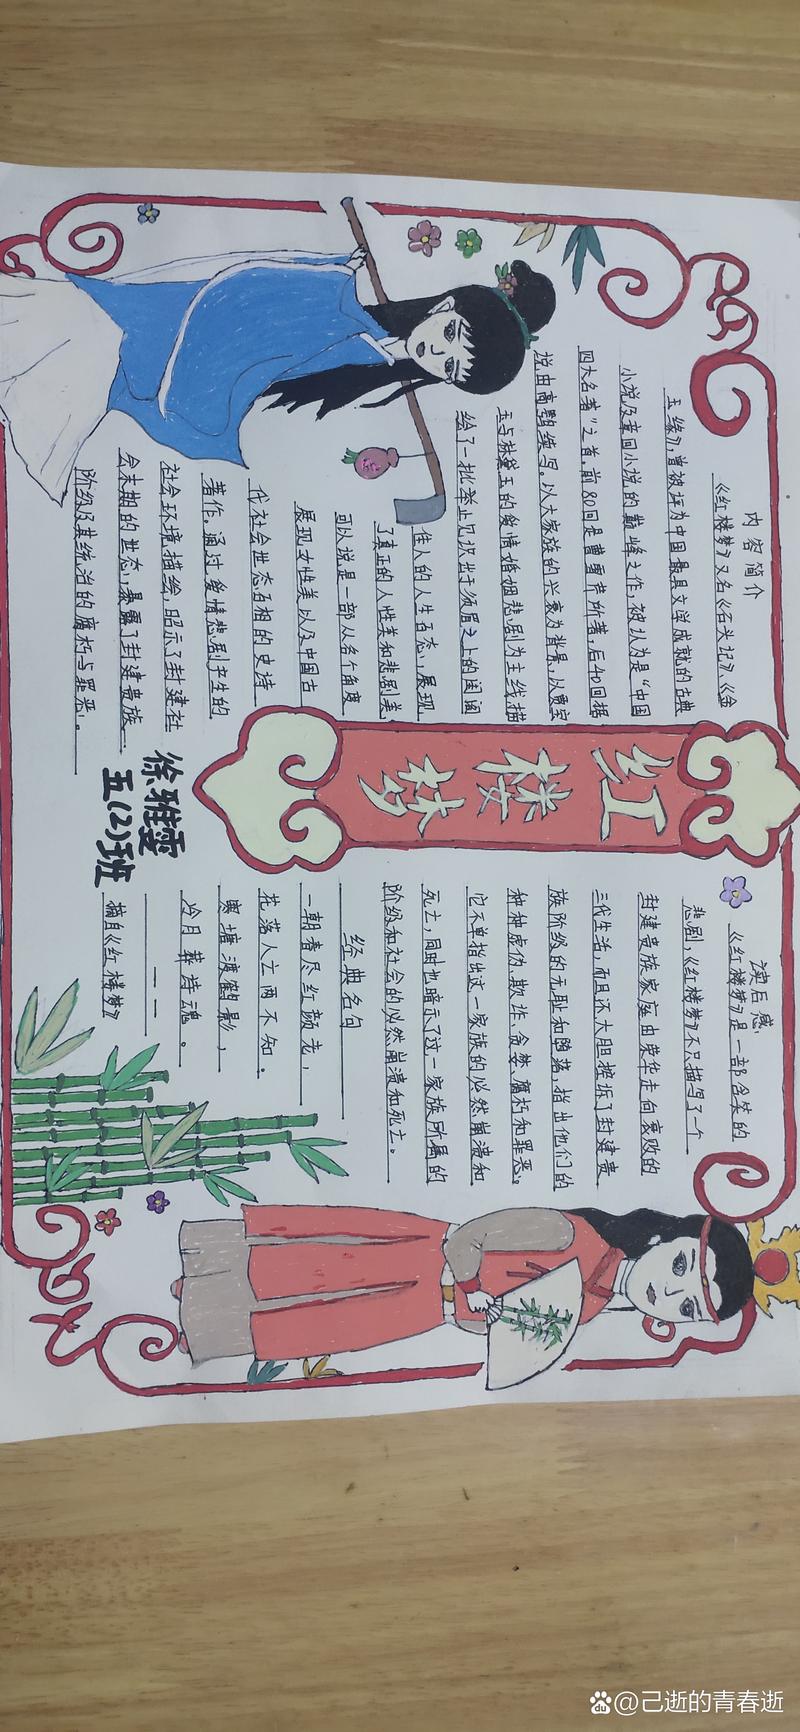 红楼梦
内容简介
《红楼梦》又名《石头记》、《金
玉缘》,曾被评为中国最具文学成就的古典
小说及章回小说的巅峰之作,被认为是“中国
四大名著”之首,前80回是曹雪芹所著,后40回据
说由高鹗续写。以大家族的兴衰为背景,以贾宝
玉与林黛玉的爱情婚姻悲剧为主线,描
绘了一批举止见识出于须眉之上的闺阁
佳人的人生百态,展现
了真正的人性美和悲剧美
可以说是一部从各个角度
展现女性美以及中国古
代社会世态百相的史诗
著作。通过爱情悲剧产生的
社会环境描绘,昭示了封建社
会末期的世态,暴露了封建贵族
阶级及其统治的腐朽与罪恶。
徐雅雯
五(2)班
读后感
《红楼梦》是一部含笑的
悲剧,《红楼梦》不只描写了一个
封建贵族家庭由荣华走向衰败的
三代生活,而且还大胆控诉了封建贵
族阶级的无耻和堕落,指出他们的
种种虚伪、欺诈、贪婪、腐朽和罪恶。
它不单指出这一家族的必然崩溃和
死亡,同时也暗示了这一家族所属的
阶级和社会的必然崩溃和死亡。
经典名句
一朝春尽红颜老,
花落人亡两不知。
寒塘渡鹤影,
冷月葬诗魂。
——
摘自《红楼梦》
@己逝的青春逝